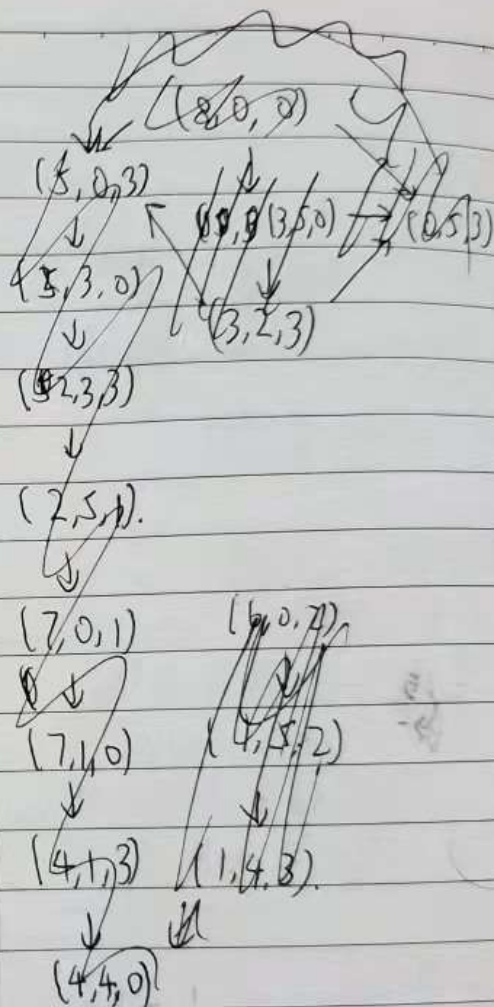 (8,0,0)
(5,0,3)
(3,5,0) → (0,5,3)
(5,3,0)
(3,2,3)
(2,3,3)
(2,5,1).
(7,0,1)
(6,0,2)
(7,1,0)
(1,5,2)
(4,1,3)
(1,4,3).
(4,4,0)